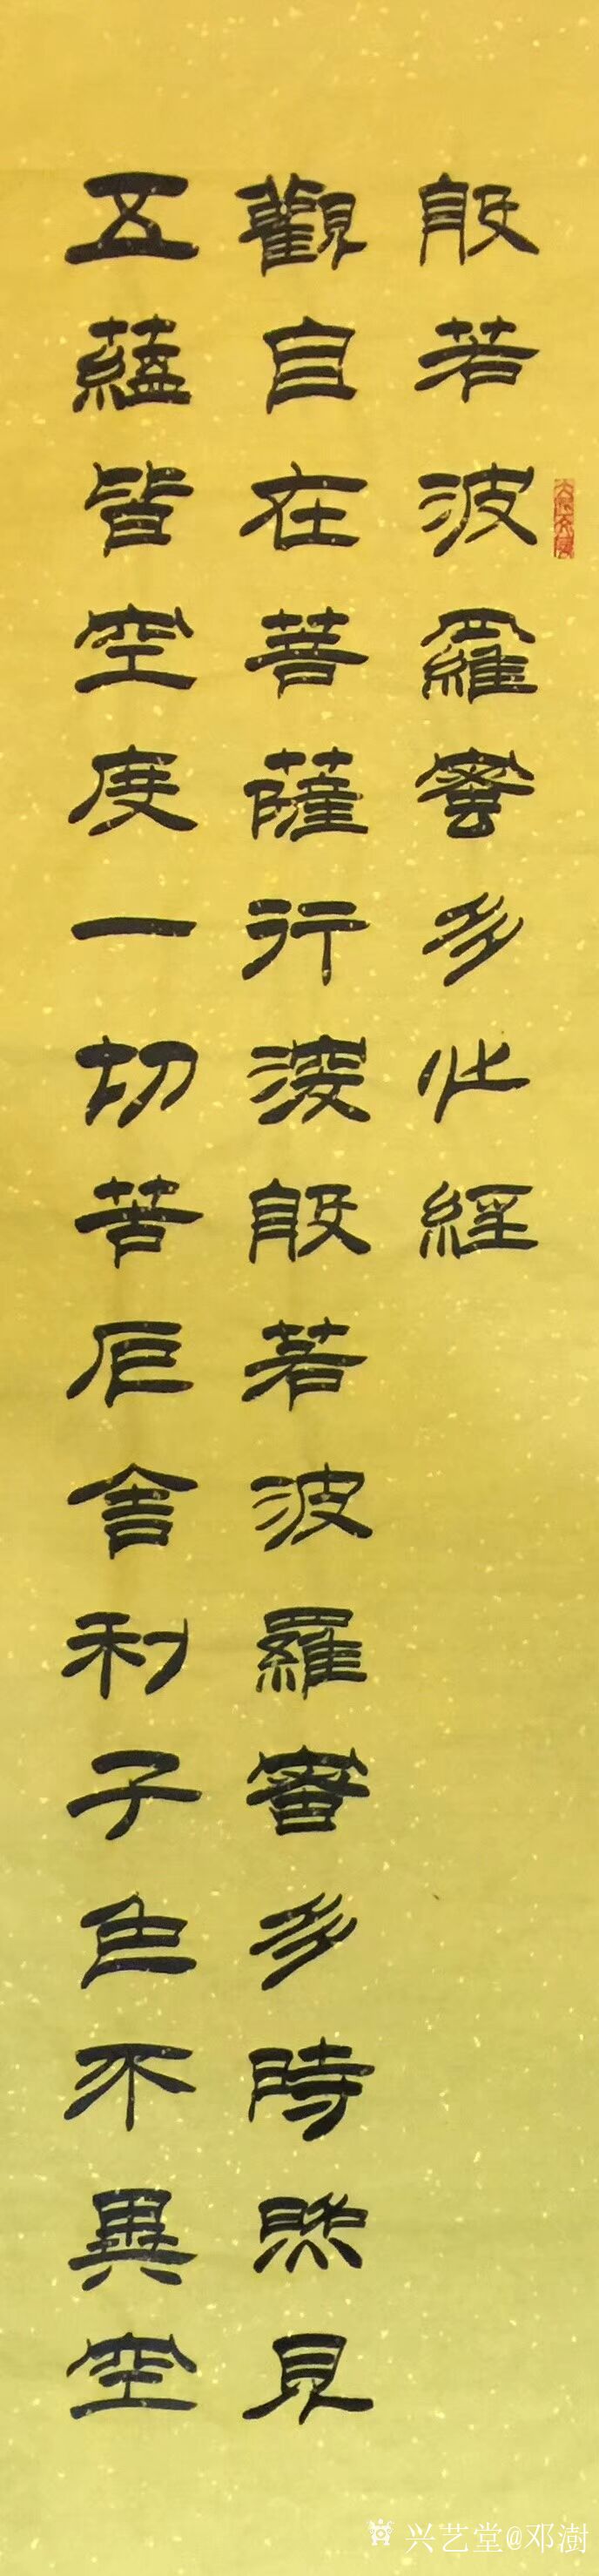 般若波羅蜜多心經
觀自在菩薩行深般若波羅蜜多時照見
五蘊皆空度一切苦厄舍利子色不異空
兴艺堂@邓澍